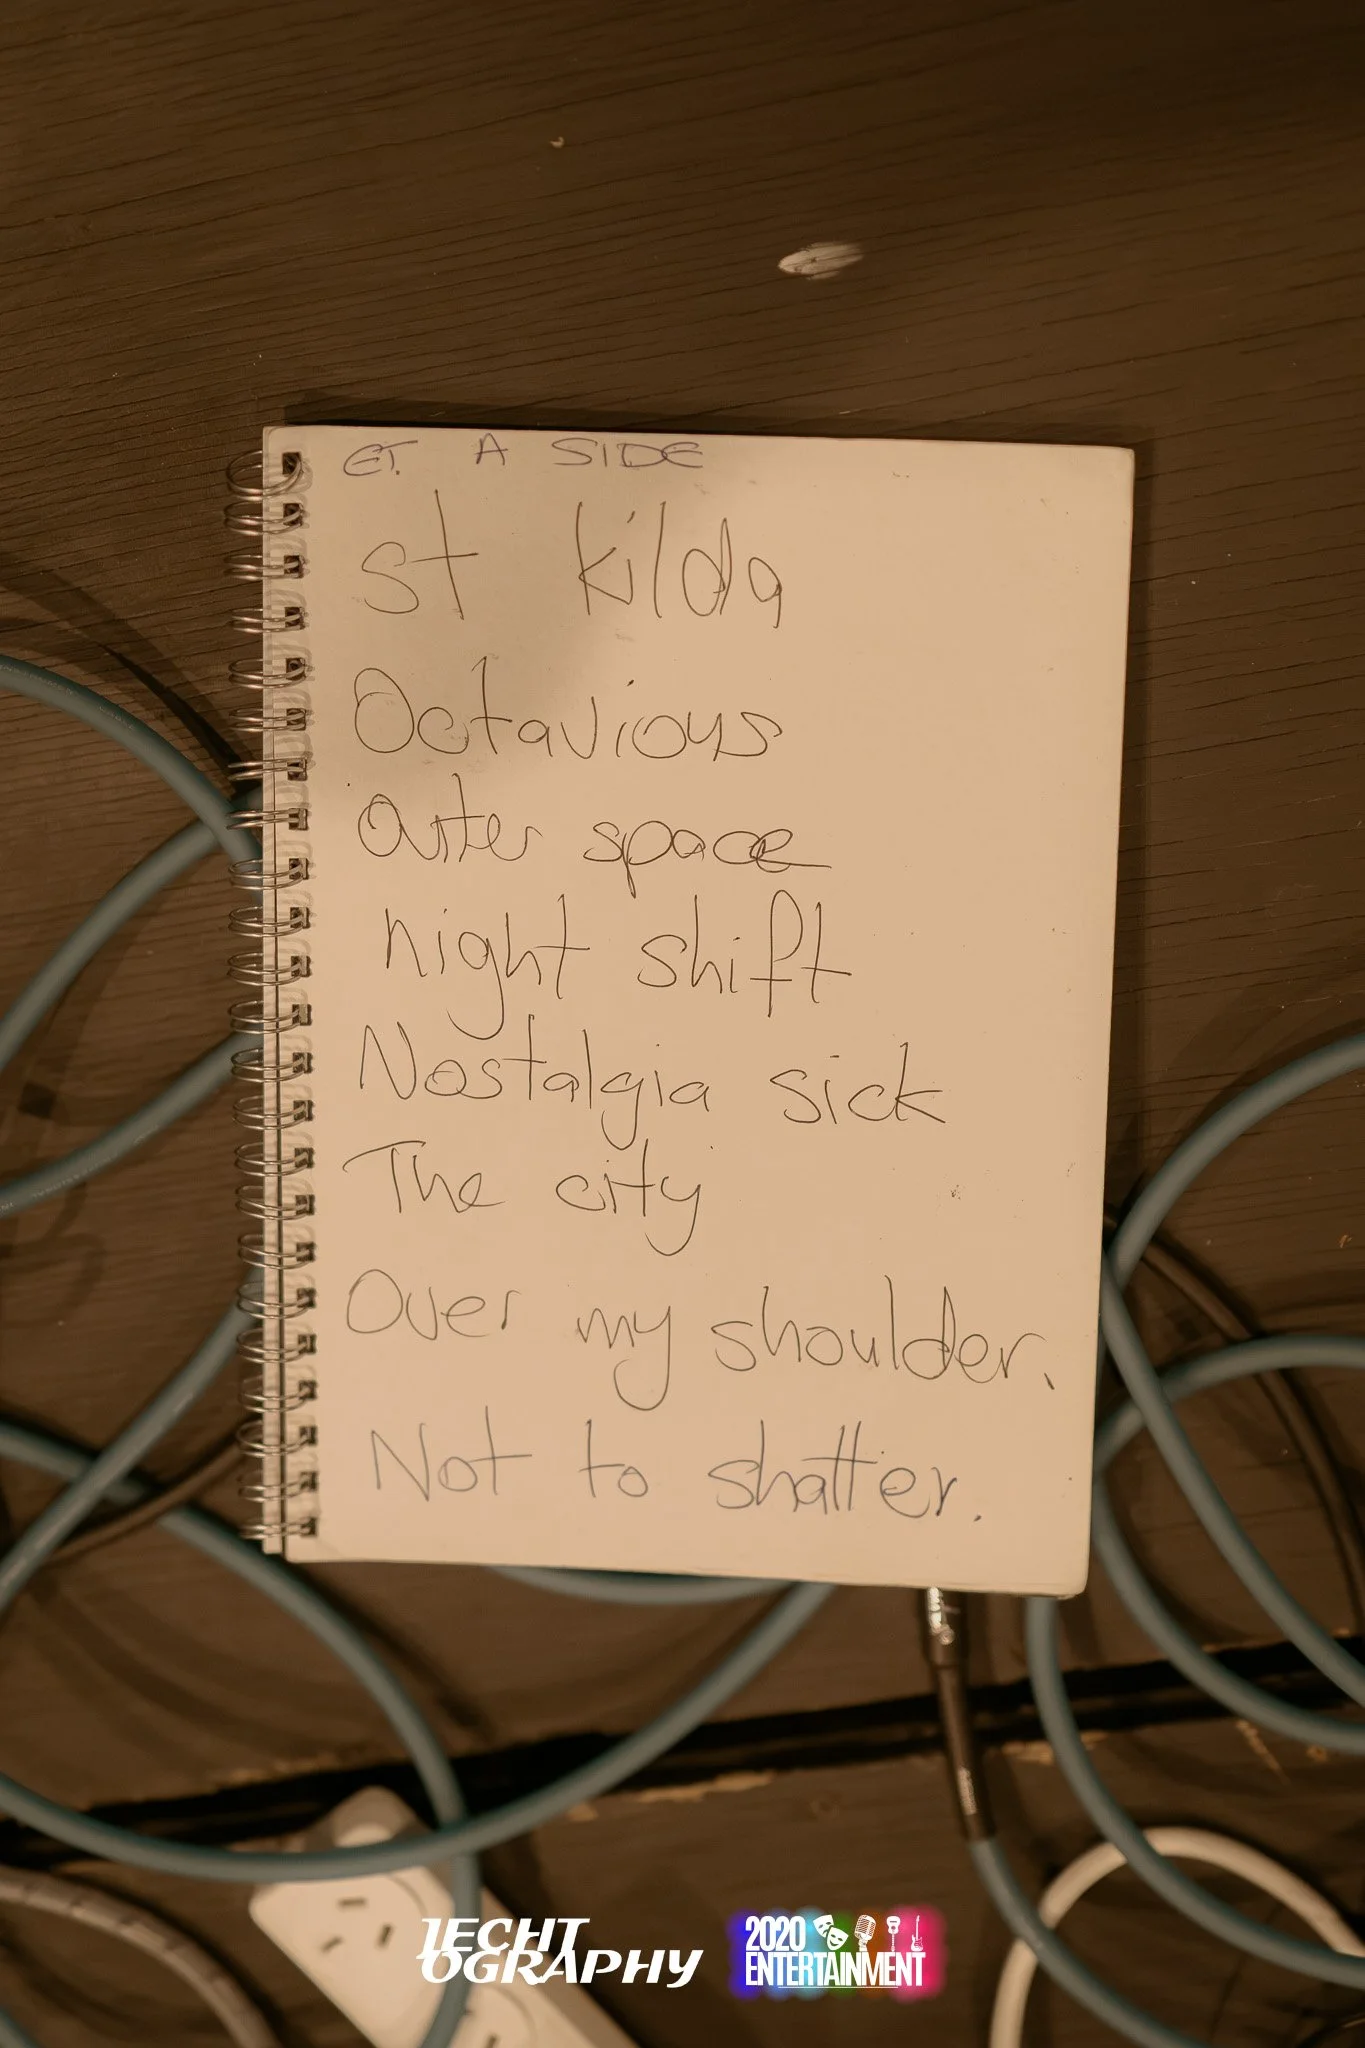 ET. A SIDE
st kilda
Octavious
Outer space
night shift
Nostalgia sick
The city
Over my shoulder.
Not to shatter.
1ECHT
OGRAPHY
2020
ENTERTAINMENT